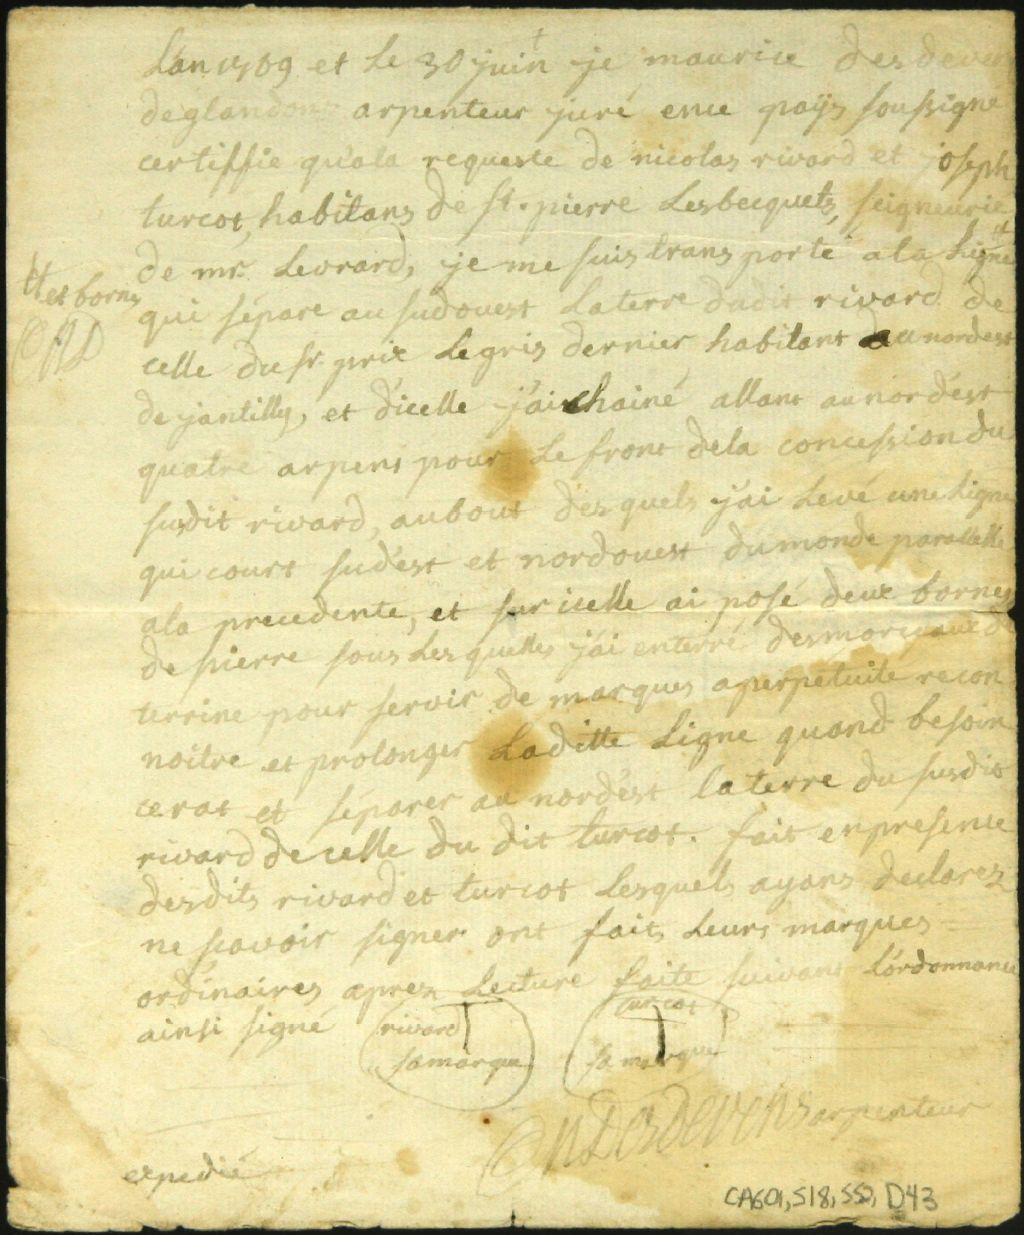 L'an 1769 et Le 30 juin je maurice des devens
deglandons arpenteur juré ence païs soussigné
certiffie qu'ala requeste de nicolas rivard et joseph
turcot, habitans de st. pierre Lesbecquets, seigneurie
de mr. Levrard, je me suis transporté ala Ligne #
# et bornes
qui sépare au sudouest Laterre dudit rivard de
MD
celle du sr. prix Legris dernier habitant au nordest
de jantilly, et d'icelle j'ai chainé allant au nord'est
quatre arpens pour Le front dela concession du
susdit rivard, aubout des quels j'ai Levé une Ligne
qui court sud'est et nordouest du monde parallelle
ala precedente, et sur icelle ai posé deux bornes
de pierre sous Les quelles j'ai enterré des morceaux de
terrine pour servir de marques aperpetuité recon
noitre et prolonger Laditte Ligne quand besoin
cerat et séparer au nord'est la terre du susdit
rivard de celle du dit turcot. fait enpresence
desdits rivard et turcot Lesquels ayans declarez
ne scavoir signer ont faits Leurs marques
ordinaires aprez Lecture faite suivant L'ordonnance
ainsi signé rivard turcot
sa marque sa marque
MDesdevens arpenteur
expedié
CA601, S18, SS2, D43